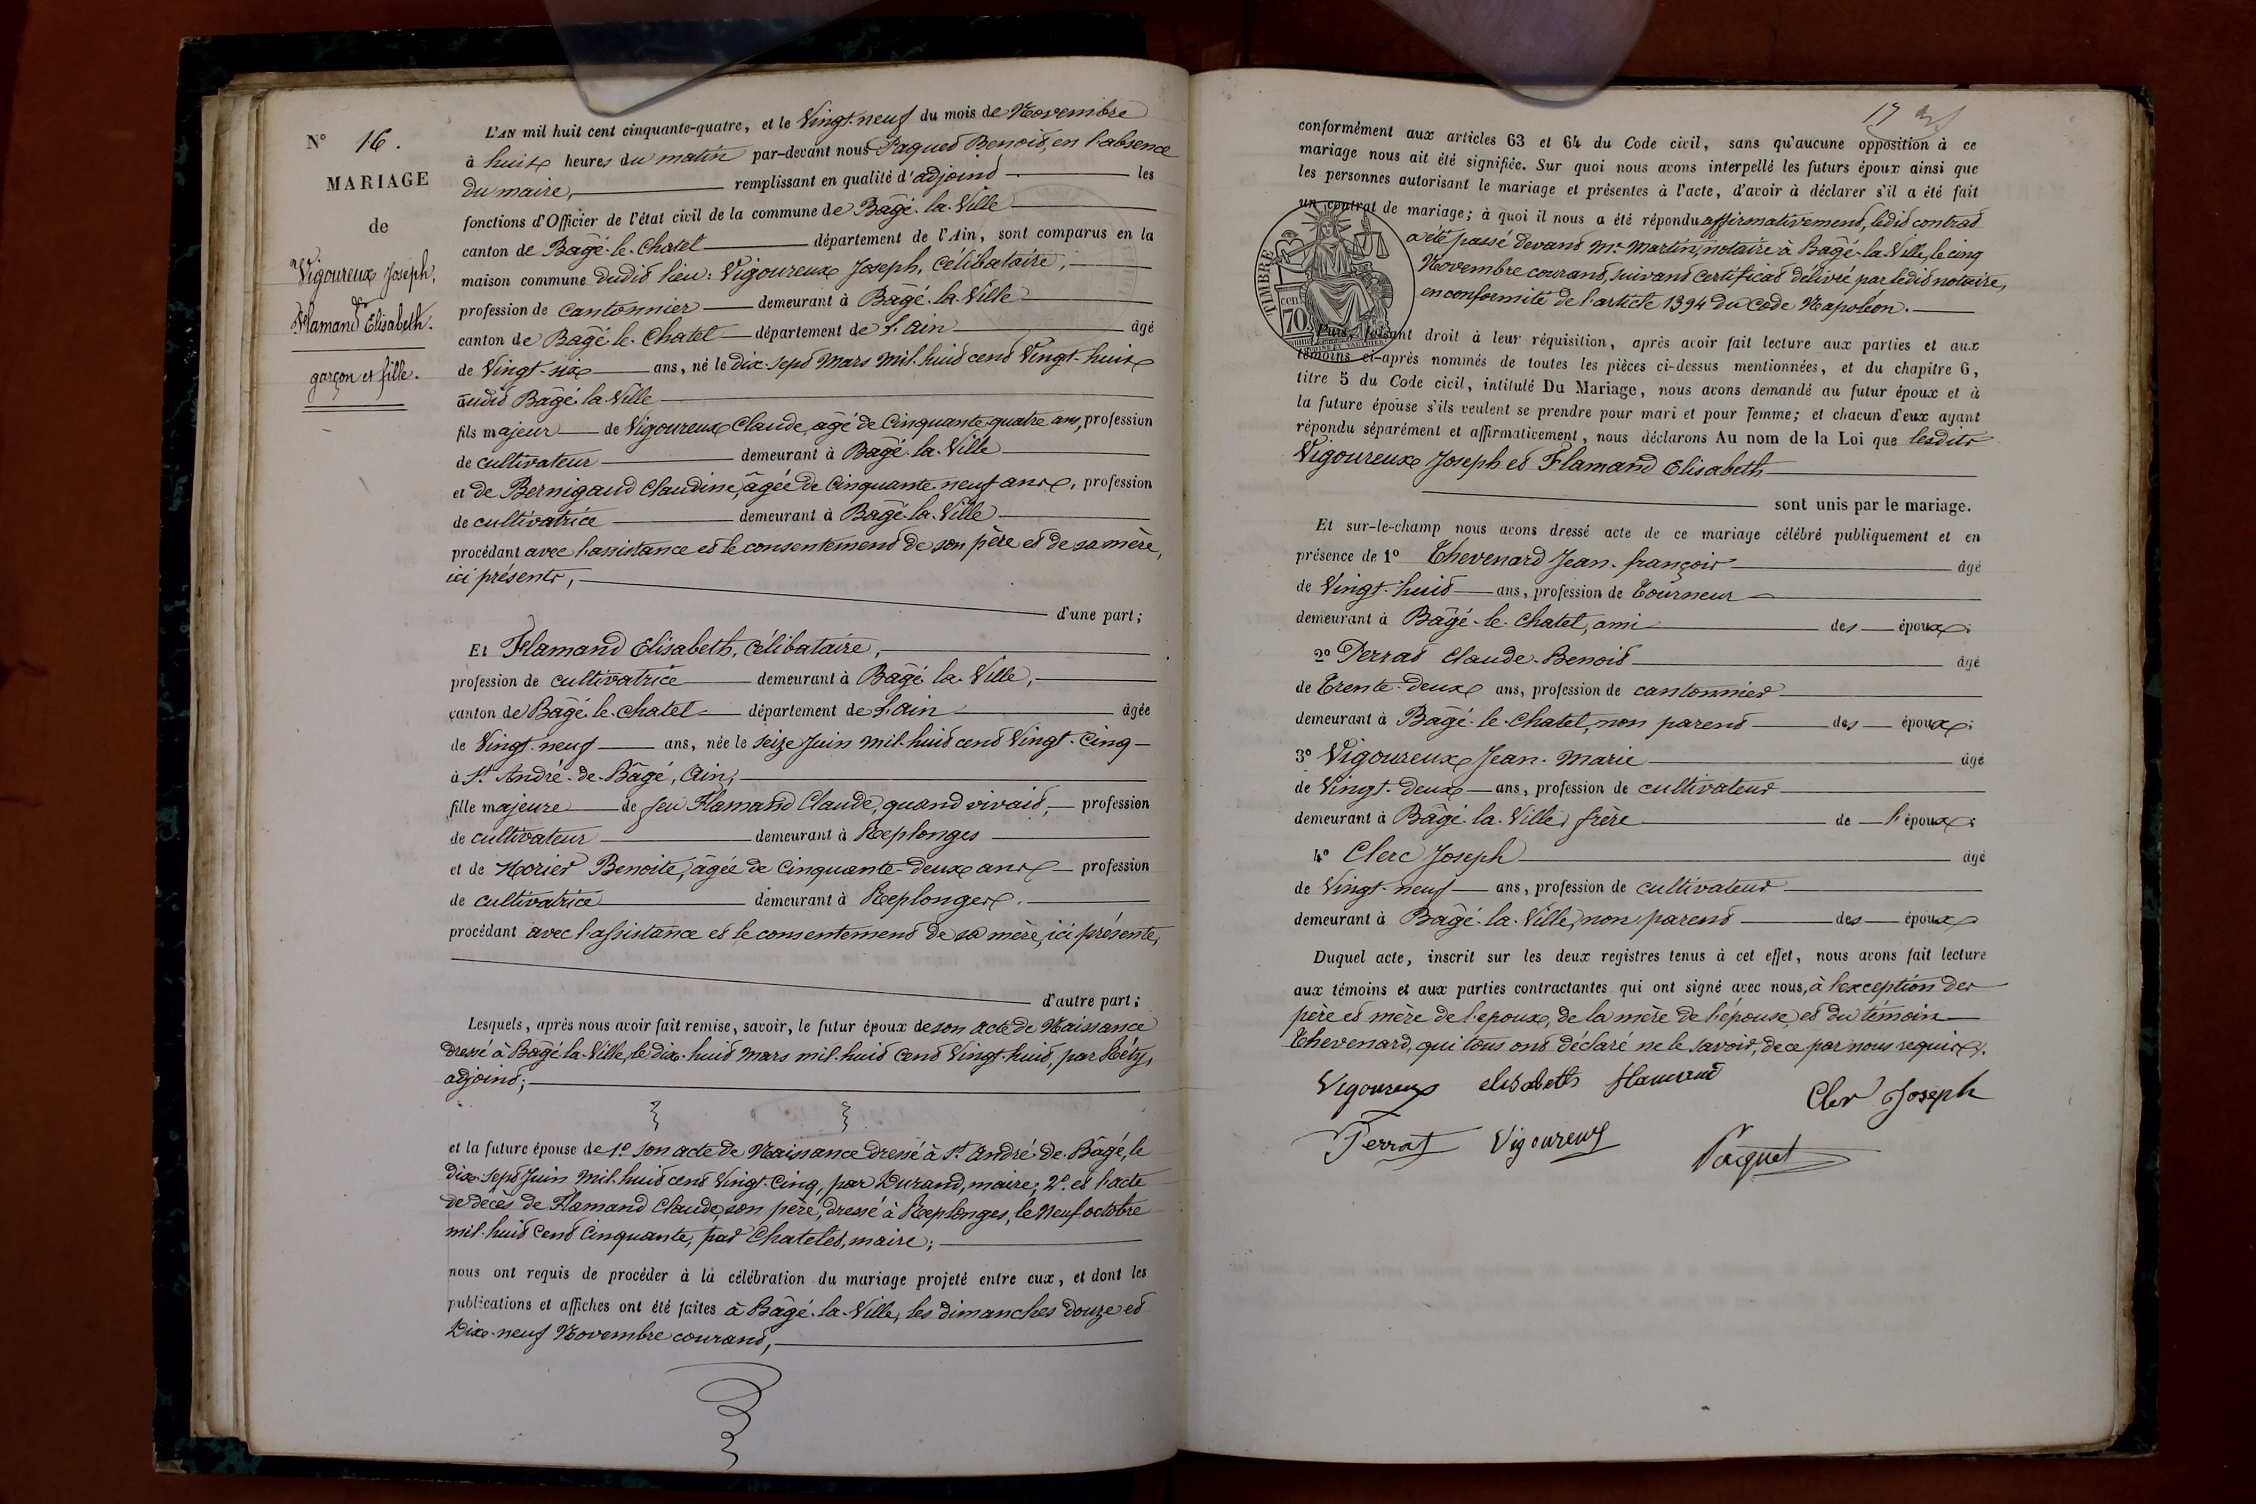 N° 16.
MARIAGE
de
Vigoureux Joseph,
et
Flamand Elisabeth.
garçon et fille.
L'AN mil huit cent cinquante-quatre, et le Vingt-neuf du mois de Novembre
à huit heures du matin par-devant nous Paquet Benoit, en l'absence
du maire, remplissant en qualité d'adjoint les
fonctions d'Officier de l'état civil de la commune de Bâgé-la-Ville
canton de Bâgé-le-Chatel département de l'Ain, sont comparus en la
maison commune dudit lieu: Vigoureux Joseph, Célibataire,
profession de cantonnier demeurant à Bâgé-la-Ville
canton de Bâgé-le-Chatel département de l'Ain âgé
de Vingt-six ans, né le dix-sept Mars mil-huit cent Vingt-huit
audit Bâgé-la-Ville
fils majeur de Vigoureux Claude, âgé de Cinquante-quatre ans, profession
de cultivateur demeurant à Bâgé-la-Ville
et de Bernigaud Claudine, âgée de Cinquante-neuf ans, profession
de cultivatrice demeurant à Bâgé-la-Ville
procédant avec l'assistance et le consentement de son père et de sa mère,
ici présents,
d'une part;
Et Flamand Elisabeth, Célibataire,
profession de cultivatrice demeurant à Bâgé-la-Ville,
canton de Bâgé-le-Chatel département de l'Ain âgée
de Vingt-neuf ans, née le seize Juin mil-huit cent Vingt-Cinq
à St André-de-Bâgé, Ain,
fille majeure de feu Flamand Claude, quand vivait, profession
de cultivateur demeurant à Replonges
et de Morier Benoite, âgée de Cinquante-deux ans profession
de cultivatrice demeurant à Replonges.
procédant avec l'assistance et le consentement de sa mère, ici présente,
d'autre part;
Lesquels, après nous avoir fait remise, savoir, le futur époux de son acte de Naissance
dressé à Bâgé-la-Ville, le dix-huit Mars mil-huit Cent Vingt-huit, par Réty,
adjoint;
et la future épouse de 1° son acte de Naissance dressé à St André-de-Bâgé, le
dix-sept Juin mil-huit cent Vingt-Cinq, par Durand, maire; 2° et l'acte
de décès de Flamand Claude, son père, dressé à Replonges, le Neuf octobre
mil-huit Cent Cinquante, par Chatelet, maire;
nous ont requis de procéder à la célébration du mariage projeté entre eux, et dont les
publications et affiches ont été faites à Bâgé-la-Ville, les dimanches douze et
Dix-neuf Novembre courant,
17
conformément aux articles 63 et 64 du Code civil, sans qu'aucune opposition à ce
mariage nous ait été signifiée. Sur quoi nous avons interpellé les futurs époux ainsi que
les personnes autorisant le mariage et présentes à l'acte, d'avoir à déclarer s'il a été fait
un contrat de mariage; à quoi il nous a été répondu affirmativement, ledit contrat
a été passé devant Me Martin, notaire à Bâgé-la-Ville, le cinq
Novembre courant, suivant certificat délivré par ledit notaire,
en conformité de l'article 1394 du Code Napoléon.
TIMBRE
cent.
70
Puis, faisant droit à leur réquisition, après avoir fait lecture aux parties et aux
témoins ci-après nommés de toutes les pièces ci-dessus mentionnées, et du chapitre 6,
titre 5 du Code civil, intitulé Du Mariage, nous avons demandé au futur époux et à
la future épouse s'ils veulent se prendre pour mari et pour femme; et chacun d'eux ayant
répondu séparément et affirmativement, nous déclarons Au nom de la Loi que lesdits
Vigoureux Joseph et Flamand Elisabeth
sont unis par le mariage.
Et sur-le-champ nous avons dressé acte de ce mariage célébré publiquement et en
présence de 1° Thevenard Jean-françois âgé
de Vingt-huit ans, profession de Tourneur
demeurant à Bâgé-le-Chatel, ami des époux;
2° Perrat Claude-Benoit âgé
de Trente-deux ans, profession de cantonnier
demeurant à Bâgé-le-Chatel, non parent des époux;
3° Vigoureux Jean-Marie âgé
de Vingt-deux ans, profession de cultivateur
demeurant à Bâgé-la-Ville, frère de l'époux;
4° Clerc Joseph âgé
de Vingt-neuf ans, profession de cultivateur
demeurant à Bâgé-la-Ville, non parent des époux
Duquel acte, inscrit sur les deux registres tenus à cet effet, nous avons fait lecture
aux témoins et aux parties contractantes qui ont signé avec nous, à l'exception des
père et mère de l'époux, de la mère de l'épouse, et du témoin
Thevenard, qui tous ont déclaré ne le savoir, de ce par nous requis.
Vigoureux elisabeth flamand
Cler Joseph
Perrat Vigoureux
Paquet